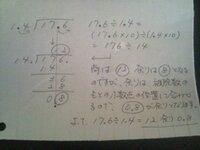 1.4)17.6
12
1.4)17.6
14
36
28
0.8
17.6÷1.4=
(17.6×10)÷(1.4×10)
=176÷14
商は12 余りは8となる
のですが、余りは、被除数の
もとの小数点の位置に合わせ
るので、0.8が余りとなります。
A.T. 17.6÷1.4=12 余り0.8